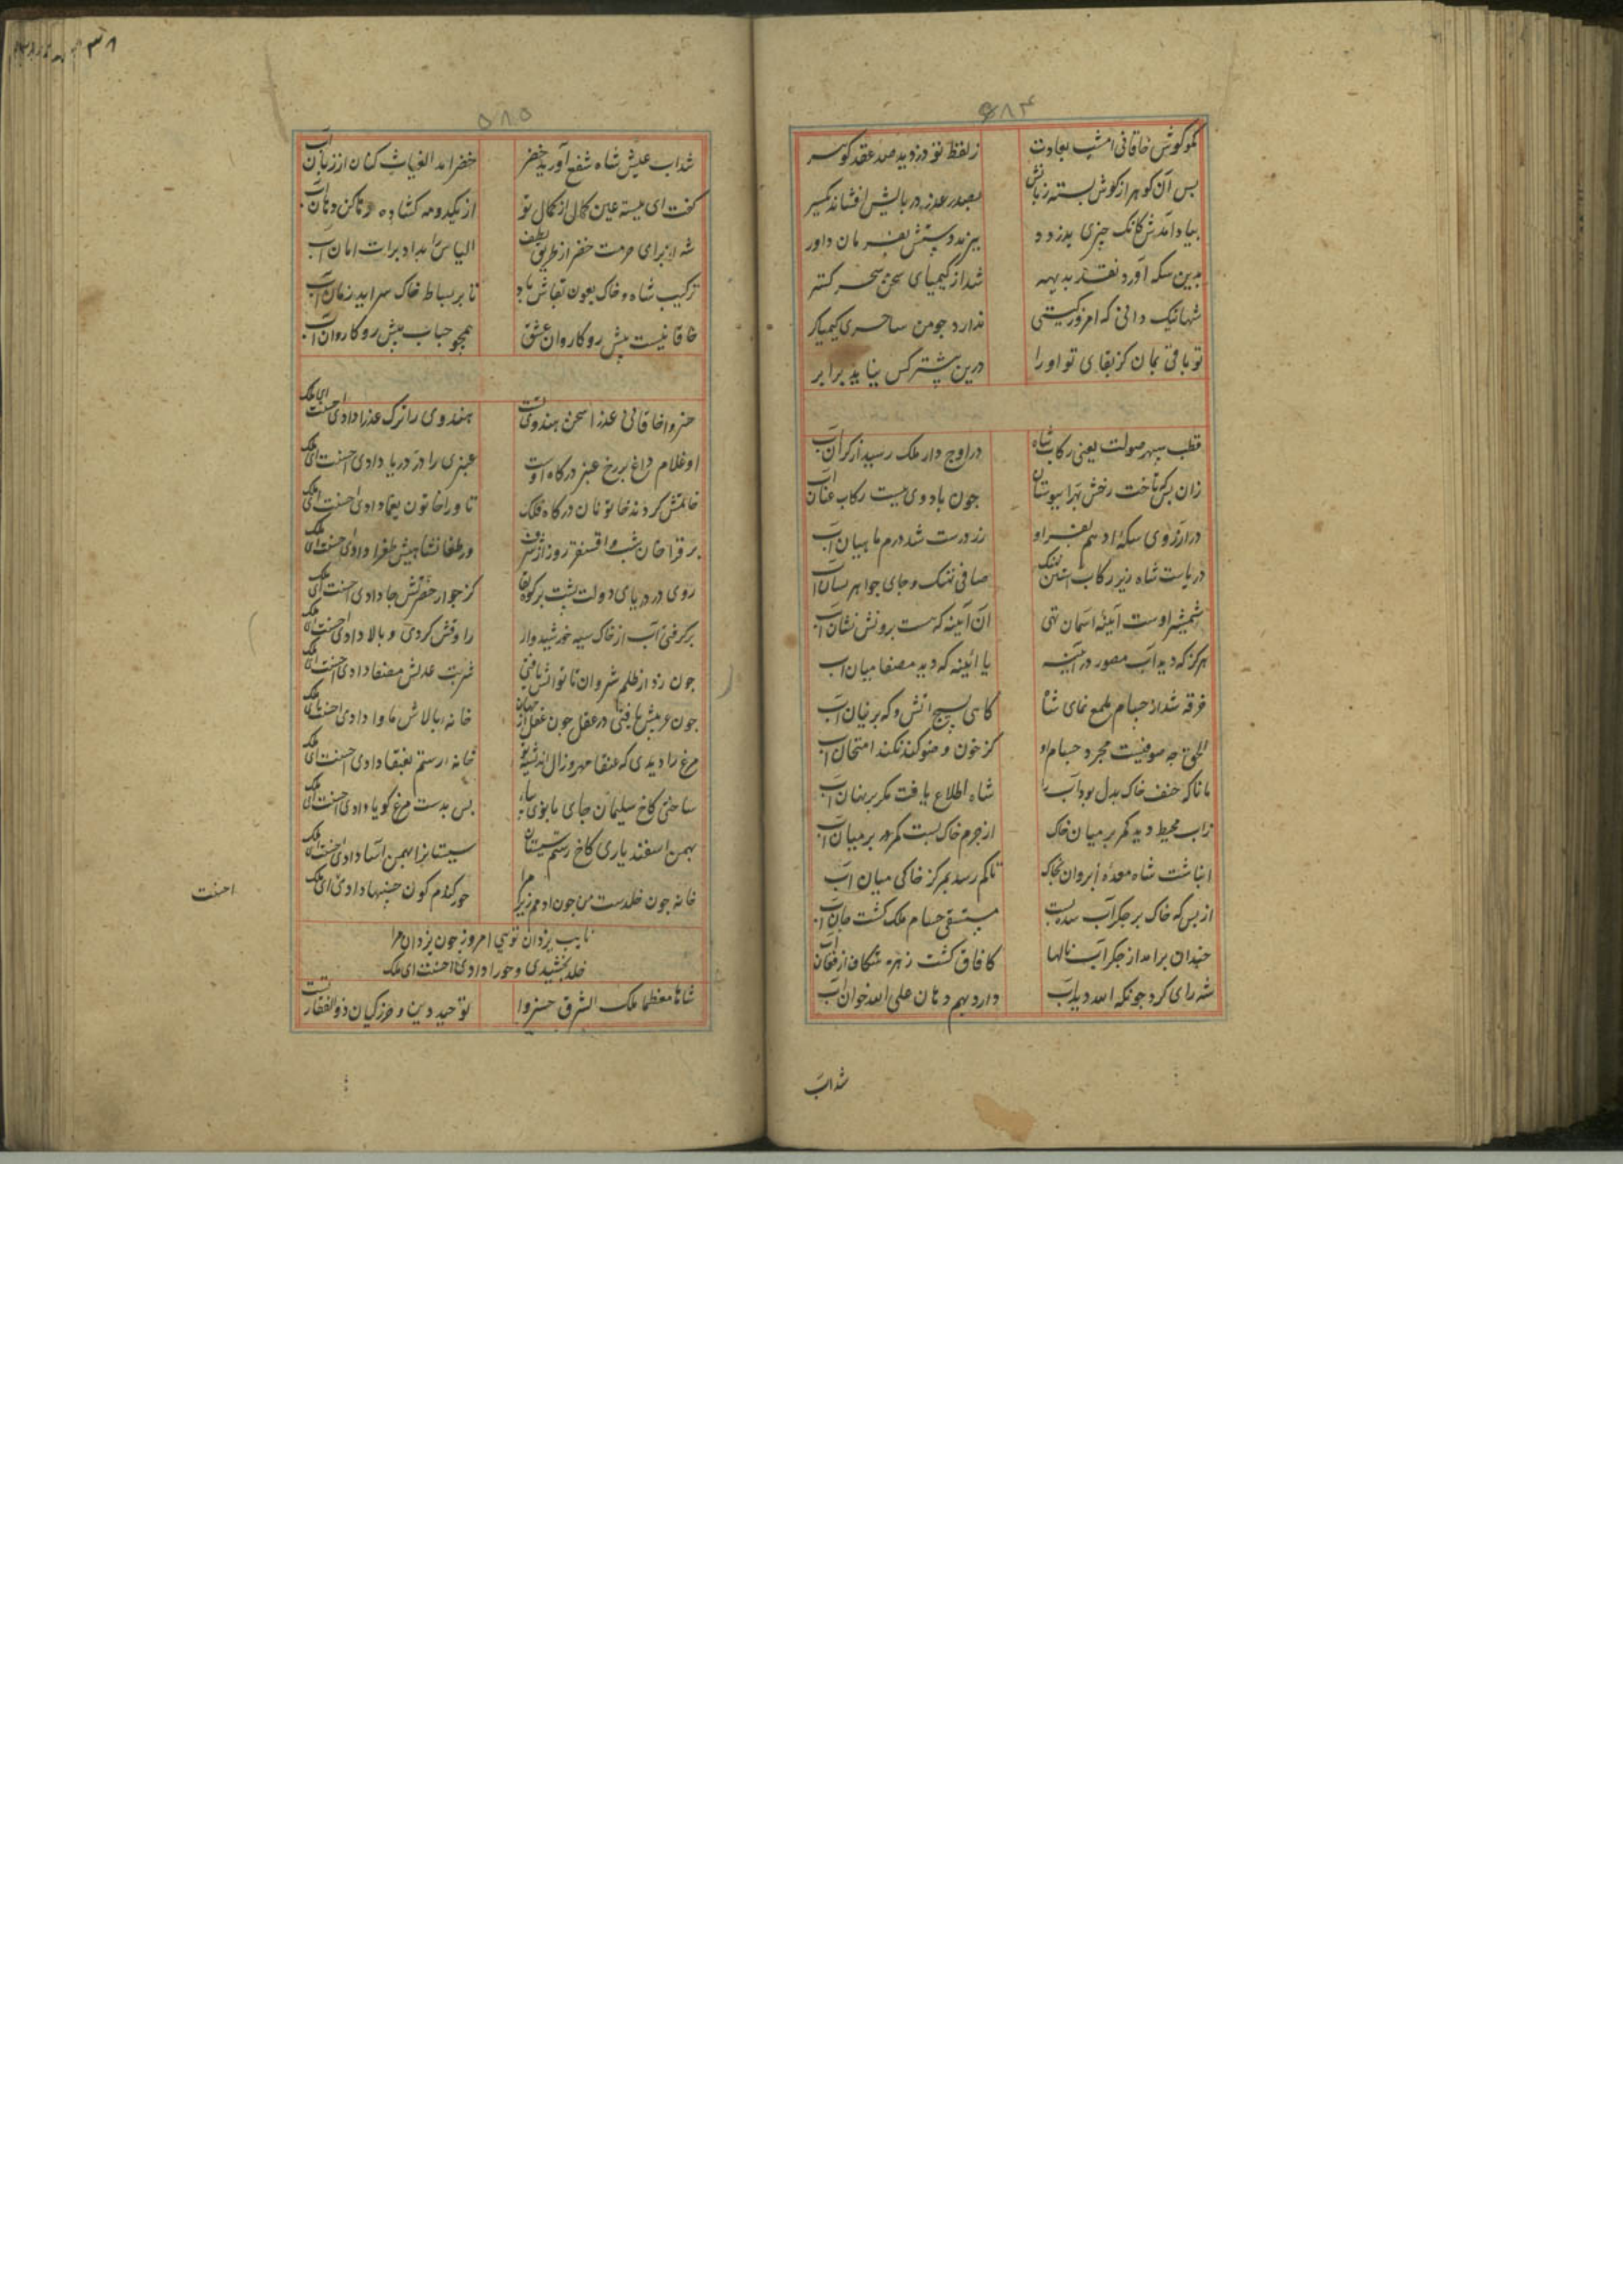 ۵۸۴
مگو گوش خاقانی امشب بعادت ز لفظ تو دزدید صد عقد گوهر
بس آن گوهر از گوش بسته زبانش بصدر عذر در بالش افشاند یکسر
بیاد آمدش کانک چیزی بدزدد ببرند دستش بفرمان داور
بدین سکه آورد نقد بدیهه شد از کیمیای سخن سحر گستر
شها نیک دانی که امروز گیتی ندارد جو من ساحری کیمیاگر
تو باقی بمان کز بقای تو او را درین پیشتر کس نیاید برابر
قطب سپهر صولت یعنی رکاب شاه در اوج دار ملک رسید از کران آب
زان بس که تاخت رخش بهرا بیوستان جون باد وی میست رکاب عنان آب
در آرزوی سکه او هم بفر او زر درست شد درم ماهیان آب
دریاست شاه زیر رکاب آتشین نهنک صافی نهنک و جای جواهر بسان آب
شمشیر اوست آینه آسمان تهی آن آینه که هست برونش نشان آب
هرگز که دید آب مصور در آینه یا آینه که دید مصفا میان آب
خرقه شد از حسام ملمع نمای شاه گاهی بسیج آتش و گه پرنیان آب
الحق جه صوفیست مجرد حسام او کز خون وضو کند نکند امتحان آب
مانا که خنف خاک بدل بود آب را شاه اطلاع یافت مکر بر نهان آب
زاب محیط دید کمر بر میان خاک از جرم خاک بست کمر بر میان آب
انباشت شاه معده ابروان بخاک تا کم رسد بمرکز خاکی میان آب
از بس که خاک بر جکر آب سده بست مستسقی حسام ملک کشت جان آب
جندان برآمد از جکر آب نالها کافاق کشت زهره شکاف از فغان آب
شه رای کرد جونکه الله دید آب دارد بهم دهان علی الله خوان آب
شد آب
۵۸۵
شد آب علیش شاه شفع آورید خضر خضر آمد الغیاث کنان از زبان آب
گفت ای میسته عین کمال از کمال تو از یکدومه کشاده رها کن دهان آب
شه از برای حرمت خضر از طریق لطف الیاس را بداد برات امان آب
ترکیب شاه و خاک بعون بقاش باد تا بر بساط خاک سراید زمان آب
خاقانیست پیش رو کاروان عشق همجو حباب پیش رو کاروان آب
خسروا خاقانی عذرا سخن هندوی تست هندوی را ترک عذرا دادی احسنت ای ملک
او غلام داغ بر رخ عنبر درکاه اوست عنبری را در دریا دادی احسنت ای ملک
خانمش کردند خاتونان درکاه فلک تا ورا خاتون یغما دادی احسنت ای ملک
بر قراخان شب و اقسنقر روز از شرف ورطغانشاهیش طغرا دادی احسنت ای ملک
روی در دریای دولت پشت بر کوه بقا کز جوار حضرتش جا دادی احسنت ای ملک
برگرفتی آب از خاک سیه خورشید وار راوقش کردی و بالا دادی احسنت ای ملک
جون زد از ظلم شروان ناتوانش یافتی شربت عدلش مصفا دادی احسنت ای ملک
جون عریش یافتی در عقل جون عقل از جهان خانه بالاش ماوا دادی احسنت ای ملک
مرغ را دیدی که عنقا مهر و زال اندیشه بود خانه رستم بعنقا دادی احسنت ای ملک
ساختی کاخ سلیمان جای بانوی سبا بس بدست مرغ گویا دادی احسنت ای ملک
بهمن اسفندیاری کاخ رستم سیستان سیستانرا بهمن آسا دادی احسنت ای ملک
خانه جون خلدست من جون آدمم زیرا مرا حور کندم کون جنبها دادی ای ملک
نایب یزدان تویی امروز جون یزدان مرا
خلد بخشیدی و حورا دادی احسنت ای ملک
شاها معظما ملک الشرق خسروا توحید دین و حرز کیان ذوالفقار تست
احسنت